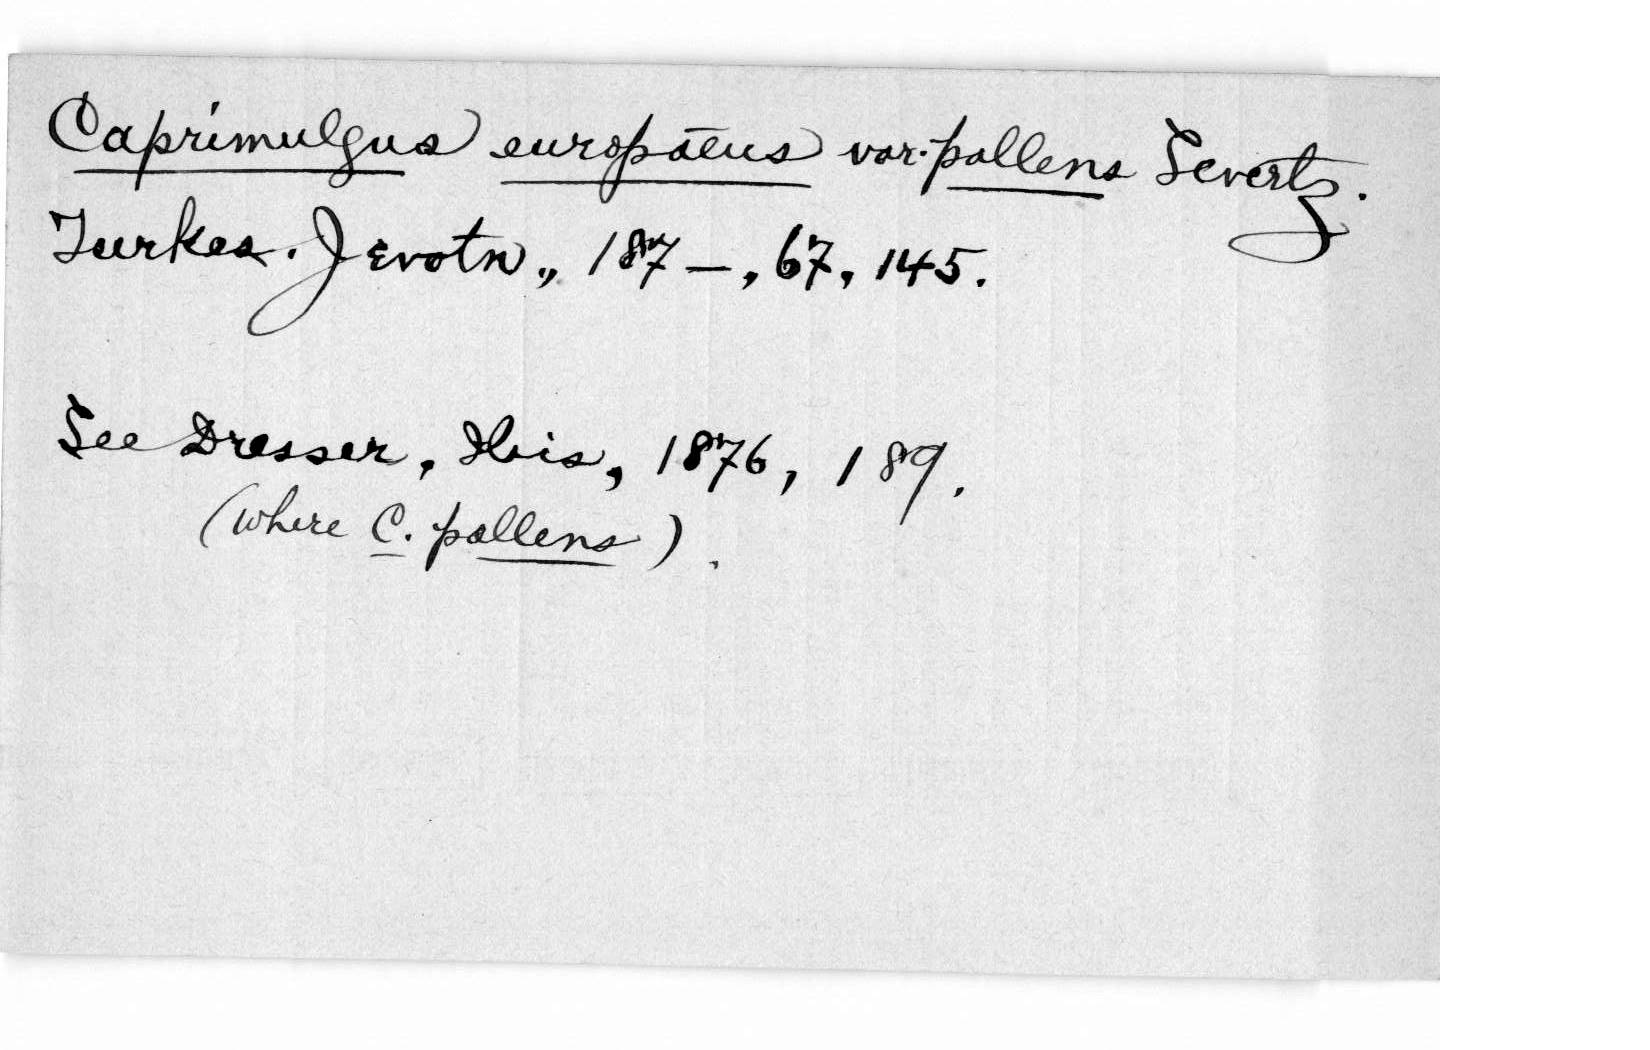 Caprimulgus europaeus var. pallens Severtz.
Turkes. Jevotn., 187-, 67, 145.
See Dresser, Ibis, 1876, 189.
(where C. pallens).